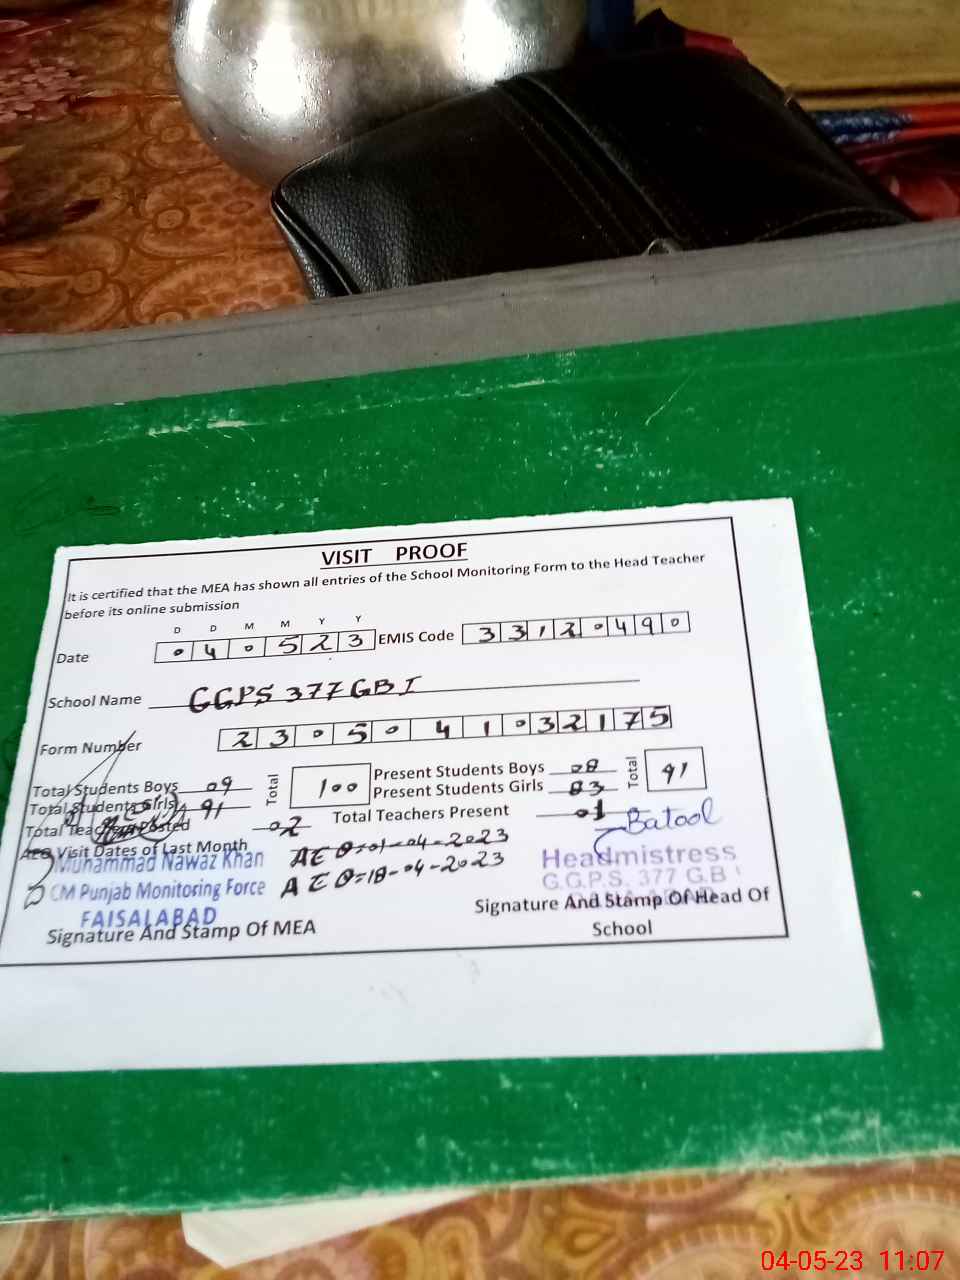 VISIT PROOF
It is certified that the MEA has shown all entries of the School Monitoring Form to the Head Teacher
before its online submission
D D M M Y Y
Date 0 4 0 5 2 3 EMIS Code 3 3 1 2 0 4 9 0
School Name GGPS 377 GB I
Form Number 2 3 0 5 0 4 1 0 3 2 1 7 5
Total Students Boys 09 Total 100 Present Students Boys 08 Total 91
Total Students Girls 91 Present Students Girls 83
Total Teachers Posted 02 Total Teachers Present 01
Batool
AEO Visit Dates of Last Month AEO=01-04-2023
Muhammad Nawaz Khan AEO=18-04-2023 Headmistress
CM Punjab Monitoring Force G.G.P.S. 377 G.B
FAISALABAD
Signature And Stamp Of MEA Signature And Stamp Of Head Of
School
04-05-23 11:07